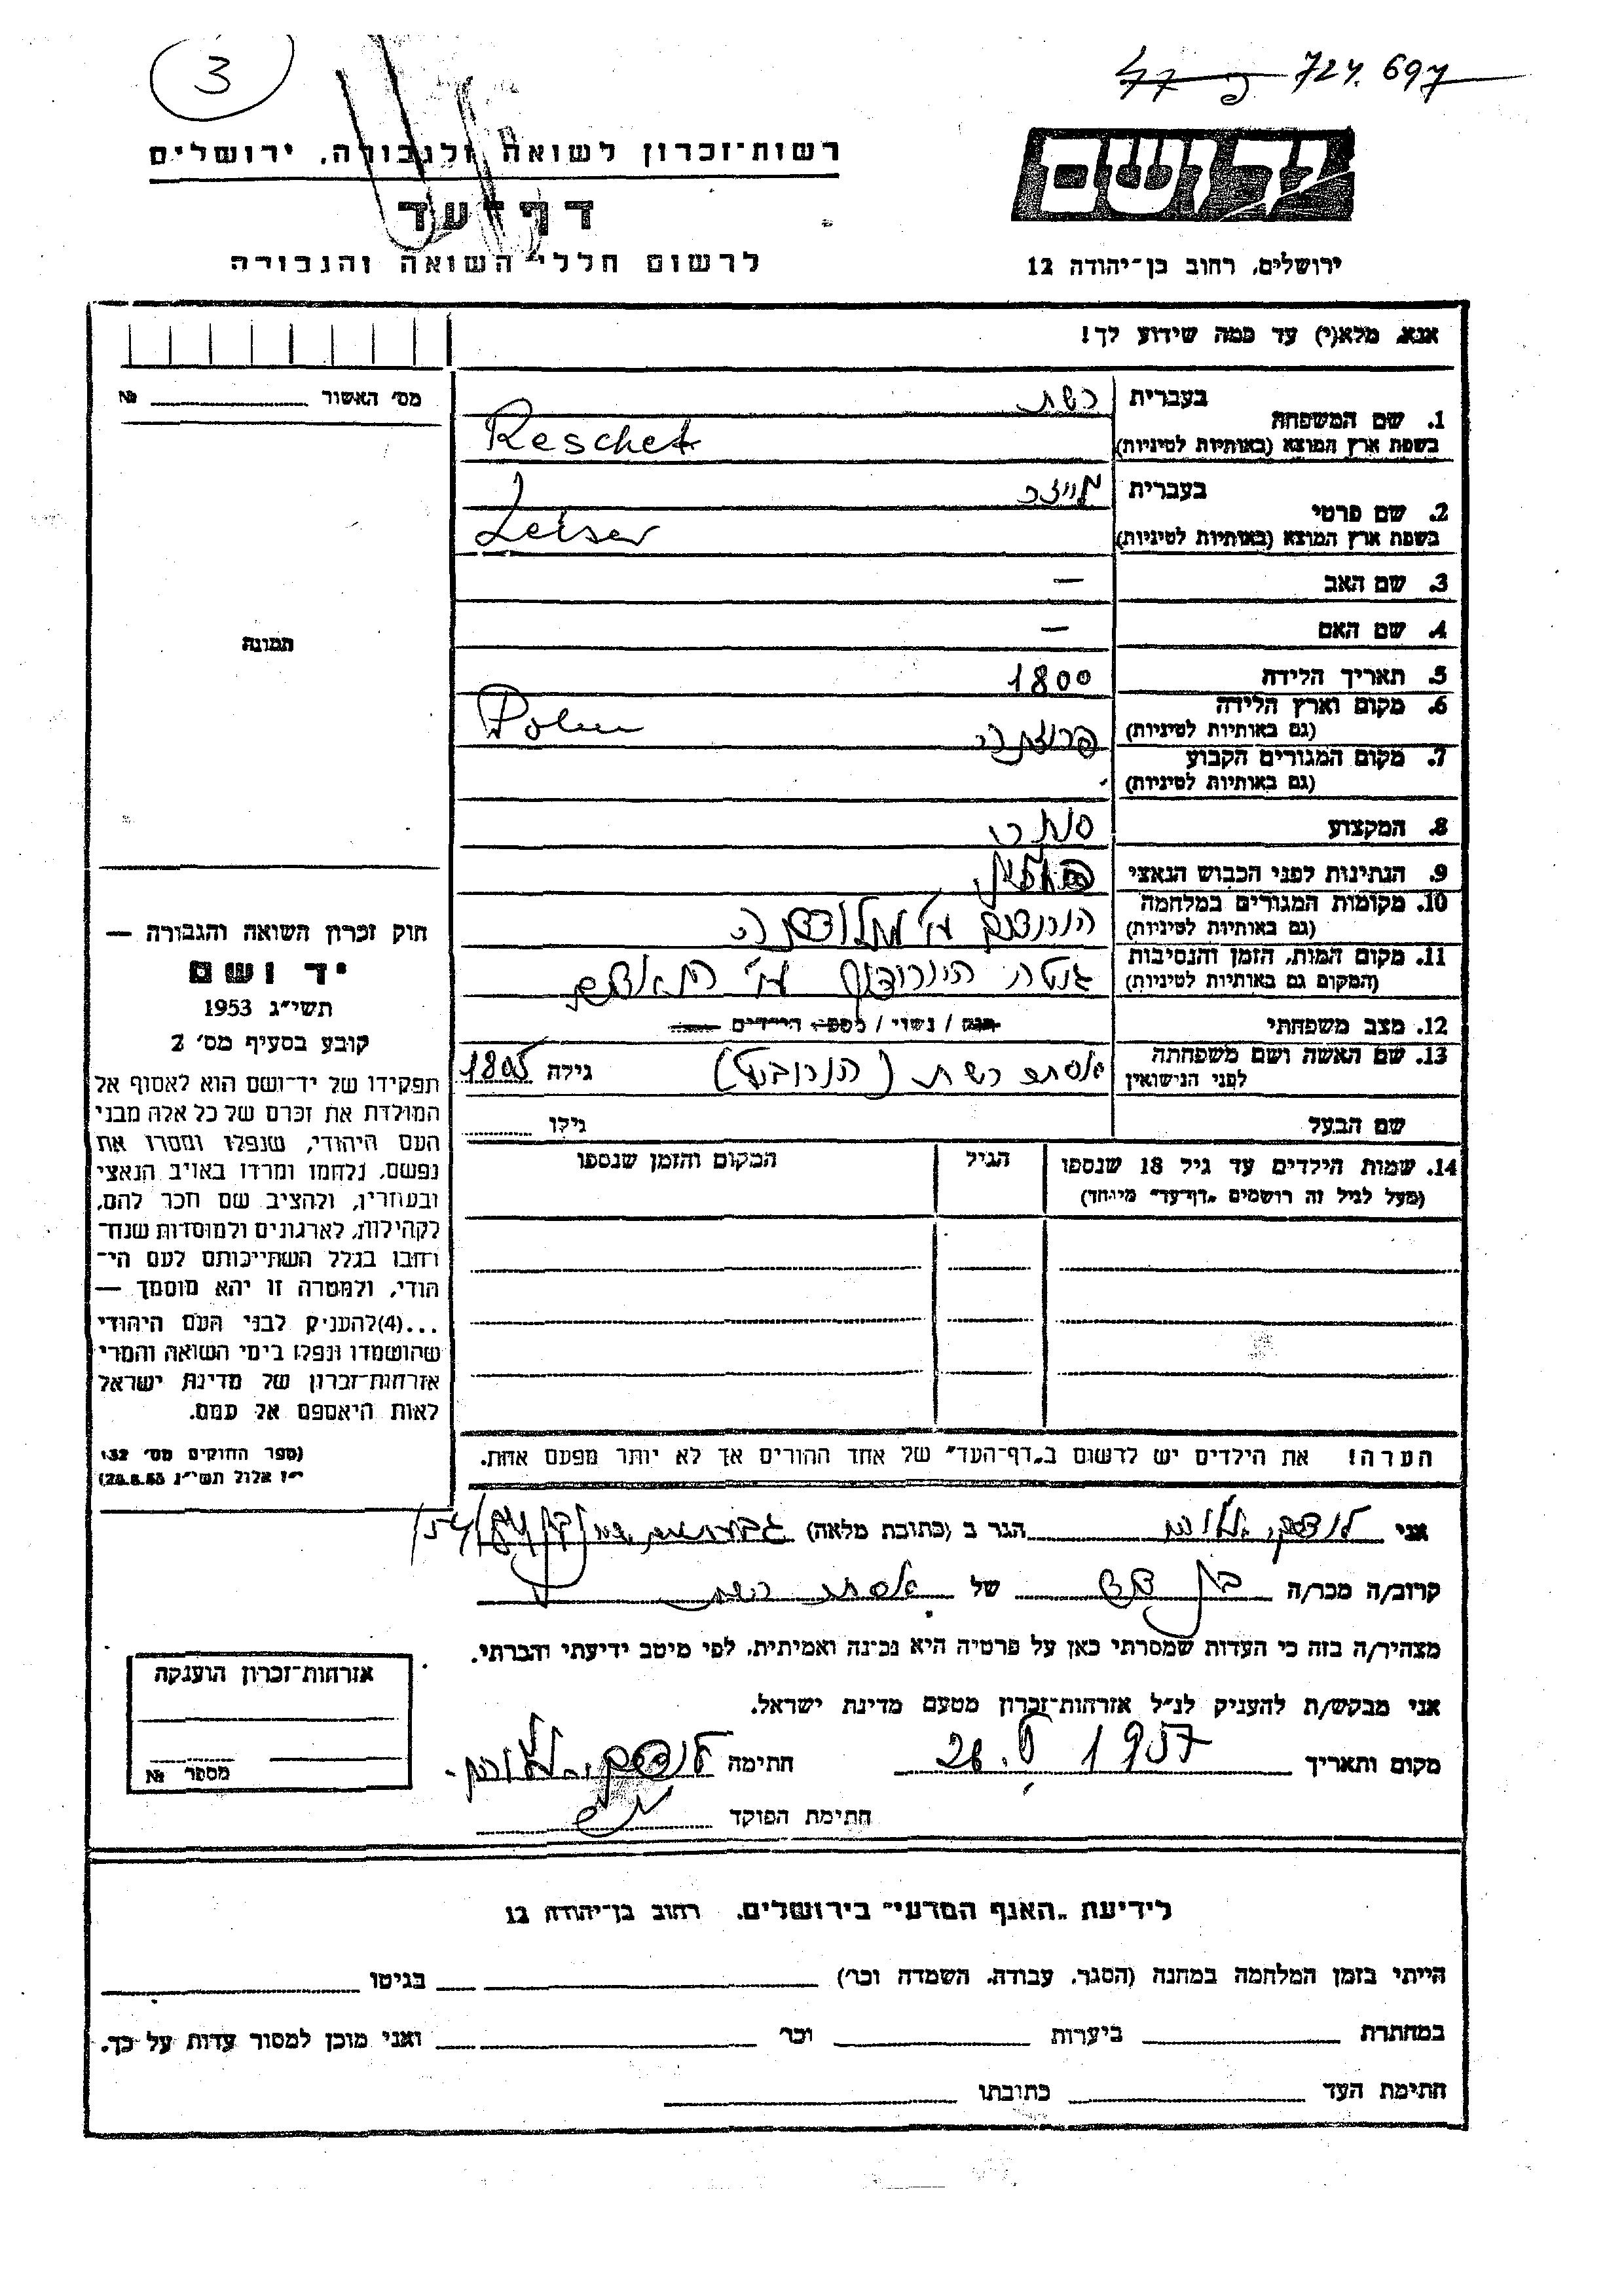 3
724.697
רשות־זכרון לשואה ולגבורה, ירושלים
דף־עד
לרשום חללי השואה והגבורה
ידושם
ירושלים, רחוב בן־יהודה 12
אנא, מלא(י) עד כמה שידוע לך!
מס׳ האשור №
1. שם המשפחה
בעברית רשת
בשפת ארץ המוצא (באותיות לטיניות) Reschet
2. שם פרטי
בעברית לייזר
בשפת ארץ המוצא (באותיות לטיניות) Leiser
3. שם האב —
4. שם האם —
5. תאריך הלידה 1800
6. מקום וארץ הלידה
(גם באותיות לטיניות) Polen
7. מקום המגורים הקבוע
(גם באותיות לטיניות)
8. המקצוע סוחר
9. הנתינות לפני הכבוש הנאצי
10. מקומות המגורים במלחמה
(גם באותיות לטיניות)
11. מקום המות, הזמן והנסיבות
(המקום גם באותיות לטיניות)
12. מצב משפחתי נשוי / הילדים
13. שם האשה ושם משפחתה
לפני הנישואין אסתר רשת גילה 1805
שם הבעל גילו
14. שמות הילדים עד גיל 18 שנספו
(מעל לגיל זה רושמים „דף־עד״ מיוחד)
הגיל
המקום והזמן שנספו
הערה! את הילדים יש לרשום ב„דף־העד״ של אחד ההורים אך לא יותר מפעם אחת.
תמונה
חוק זכרון השואה והגבורה —
יד ושם
תשי״ג 1953
קובע בסעיף מס׳ 2
תפקידו של יד־ושם הוא לאסוף אל
המולדת את זכרם של כל אלה מבני
העם היהודי, שנפלו ומסרו את
נפשם, נלחמו ומרדו באויב הנאצי
ובעוזריו, ולהציב שם וזכר להם,
לקהילות, לארגונים ולמוסדות שנח־
רחבו בגלל השתייכותם לעם הי־
הודי, ולמטרה זו יהא מוסמך —
...(4)להעניק לבני העם היהודי
שהושמדו ונפלו בימי השואה והמרי
אזרחות־זכרון של מדינת ישראל
לאות היאספם אל עמם.
(ספר החוקים מס׳ 132
י״ז אלול תשי״ג 28.8.53)
אני הגר ב (כתובת מלאה)
קרוב/ה מכר/ה בן דוד של אסתר רשת
מצהיר/ה בזה כי העדות שמסרתי כאן על פרטיה היא נכונה ואמיתית, לפי מיטב ידיעתי והכרתי.
אני מבקש/ת להעניק לנ״ל אזרחות־זכרון מטעם מדינת ישראל.
מקום ותאריך 1957 חתימה
חתימת הפוקד
אזרחות־זכרון הוענקה
מספר №
לידיעת „האגף המדעי״ בירושלים, רחוב בן־יהודה 12
הייתי בזמן המלחמה במחנה (הסגר, עבודה, השמדה וכו׳) בגיטו
במחתרת ביערות וכו׳ ואני מוכן למסור עדות על כך.
חתימת העד כתובתו